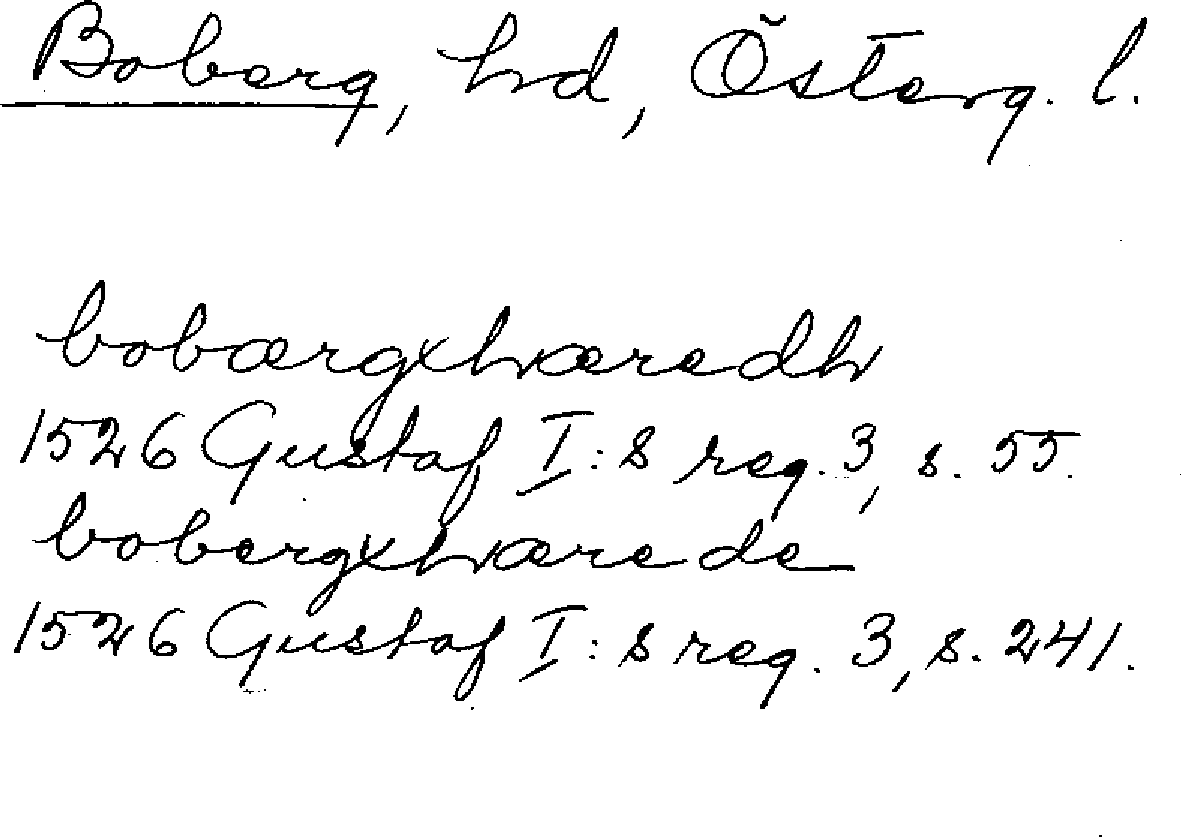 Boberg, hd, Österg. l.
bobærgxhæredh
1526 Gustaf I:s reg. 3, s. 55.
bobergxhærede
1526 Gustaf I:s reg. 3, s. 241.